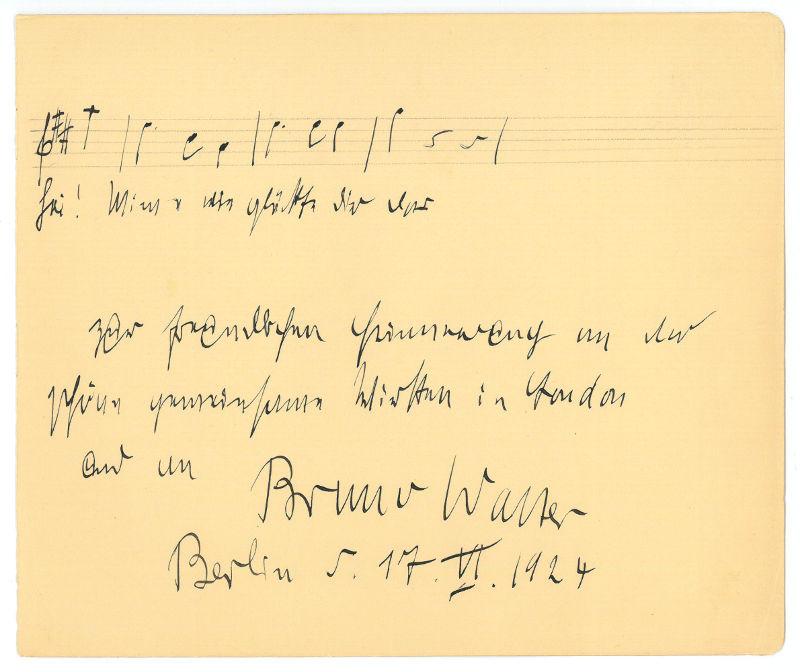 Hei! Mime wie glückte dir das
zur freundlichen Erinnerung an das
schöne gemeinsame Wirken in London
und an Bruno Walter
Berlin d. 17. VI. 1924